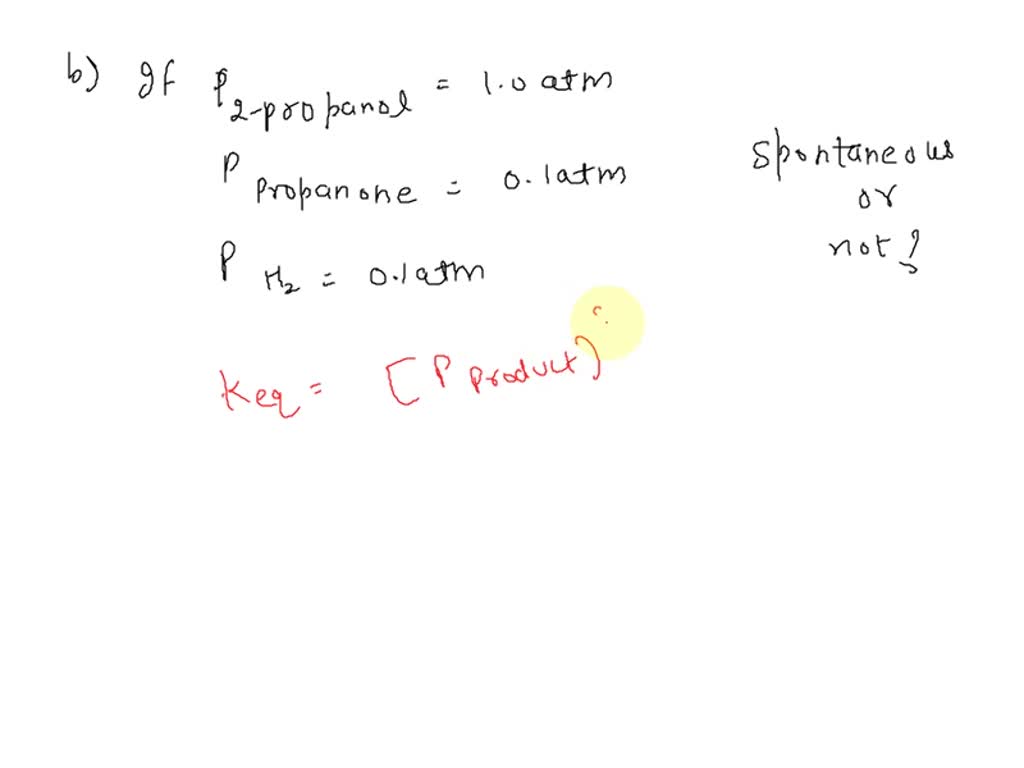 b) If P 2-propanol = 1.0 atm
P Propanone = 0.1 atm
P H2 = 0.1 atm
Spontaneous
or
not?
Keq = [P product]